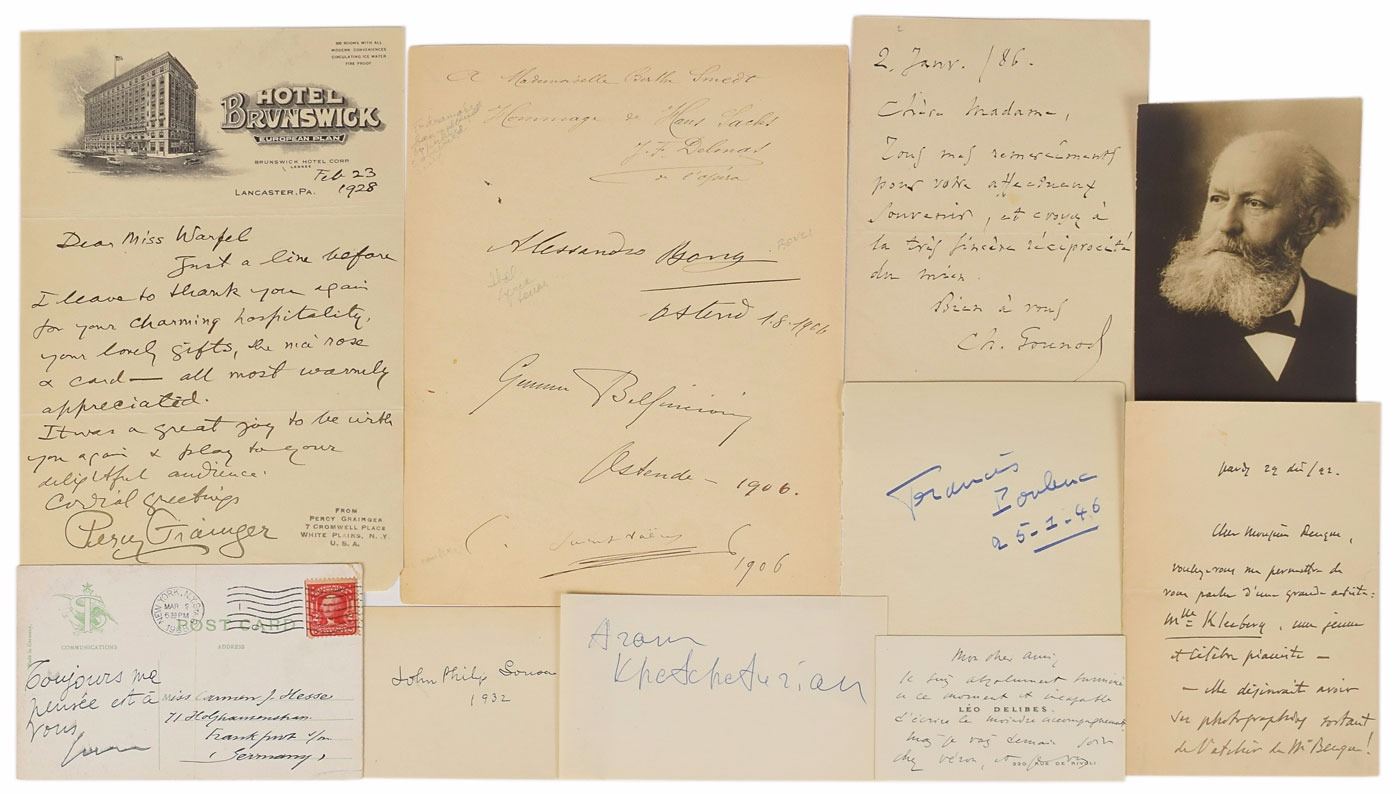 300 ROOMS WITH ALL
MODERN CONVENIENCES
CIRCULATING ICE WATER
FIRE PROOF
HOTEL
BRVNSWICK
EUROPEAN PLAN
BRUNSWICK HOTEL CORP.
LESSEE
LANCASTER, PA.
Feb 23
1928
Dear Miss Warfel
Just a line before
I leave to thank you again
for your charming hospitality,
your lovely gifts, the nice rose
& card — all most warmly
appreciated.
It was a great joy to be with
you again & play to your
delightful audience.
Cordial greetings
Percy Grainger
FROM
PERCY GRAINGER
7 CROMWELL PLACE
WHITE PLAINS, N.Y.
U.S.A.
A Mademoiselle Berthe Smedt
Hommage de Hans Sachs
J. F. Delmas
de l'opéra
Alessandro Bonci
Bonci
Ostend 1-8-1906
Gemma Bellincioni
Ostende - 1906.
1906
2. Janv. /86.
Chère Madame,
Tous mes remerciements
pour votre affectueux
souvenir, et croyez à
la très sincère réciprocité
du mien.
Bien à vous
Ch. Gounod
Francis
Poulenc
25-1-46
Mardi 29 /92.
Cher Monsieur
voulez-vous me permettre de
vous parler d'une grande artiste:
Mlle Kleeberg, une jeune
et célèbre pianiste —
— Elle désirerait avoir
sa photographie sortant
de l'atelier de Mr Benque!
NEW YORK, N.Y.
MAR 9
POST CARD
COMMUNICATIONS
ADDRESS
Toujours ma
pensée est à
vous
Miss Carmen J. Hesse
Frankfurt a/m
(Germany)
John Philip Sousa
1932
Aram
Khatchaturian
Mon cher ami,
Je suis absolument surmené
en ce moment et incapable
LÉO DELIBES.
d'écrire le moindre accompagnement
mais je vais demain soir
chez Véron, et
220, RUE DE RIVOLI